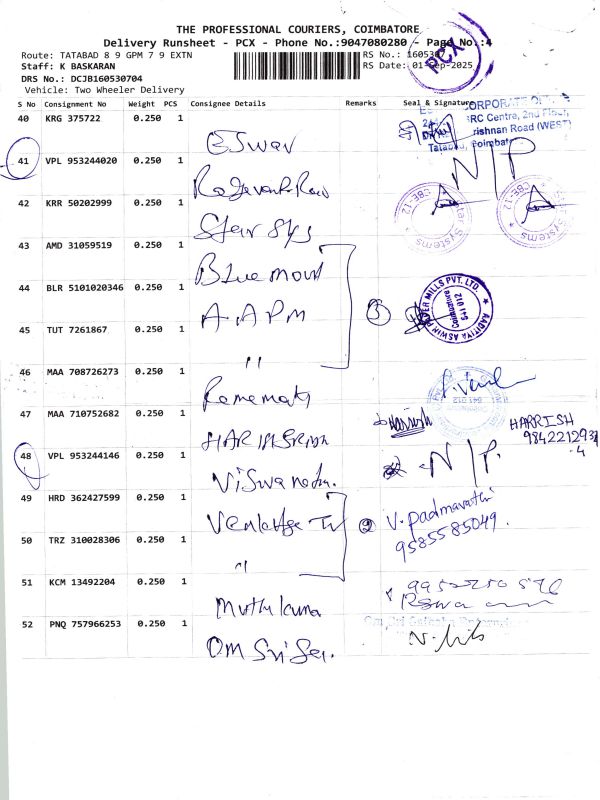 THE PROFESSIONAL COURIERS, COIMBATORE
Delivery Runsheet - PCX - Phone No.:9047080280 - Page No.:4
PCX
Route: TATABAD 8 9 GPM 7 9 EXTN
RS No.: 1605307
Staff: K BASKARAN
RS Date: 01-Sep-2025
DRS No.: DCJB160530704
Vehicle: Two Wheeler Delivery
S No Consignment No Weight PCS Consignee Details Remarks Seal & Signature
40 KRG 375722 0.250 1
ESwar
CORPORATE
RC Centre, 2nd Floor,
rishnan Road (WEST)
Tatabad, Coimbatore
41 VPL 953244020 0.250 1
N/P
42 KRR 50202999 0.250 1
Star Sys
CBE-12
Systems
CBE-12
Systems
43 AMD 31059519 0.250 1
Blue mount
44 BLR 5101020346 0.250 1
A.A.P.M
3
AADITYA ASWIN PAPER MILLS PVT. LTD.
Coimbatore
641 012
45 TUT 7261867 0.250 1
"
46 MAA 708726273 0.250 1
47 MAA 710752682 0.250 1
Harrish
HARRISH
9842212931
4
48 VPL 953244146 0.250 1
Viswanathn.
N/P.
49 HRD 362427599 0.250 1
2
V. Padmavathi
9585585049.
50 TRZ 310028306 0.250 1
"
51 KCM 13492204 0.250 1
Muthukuma
52 PNQ 757966253 0.250 1
Om Sri Sai.